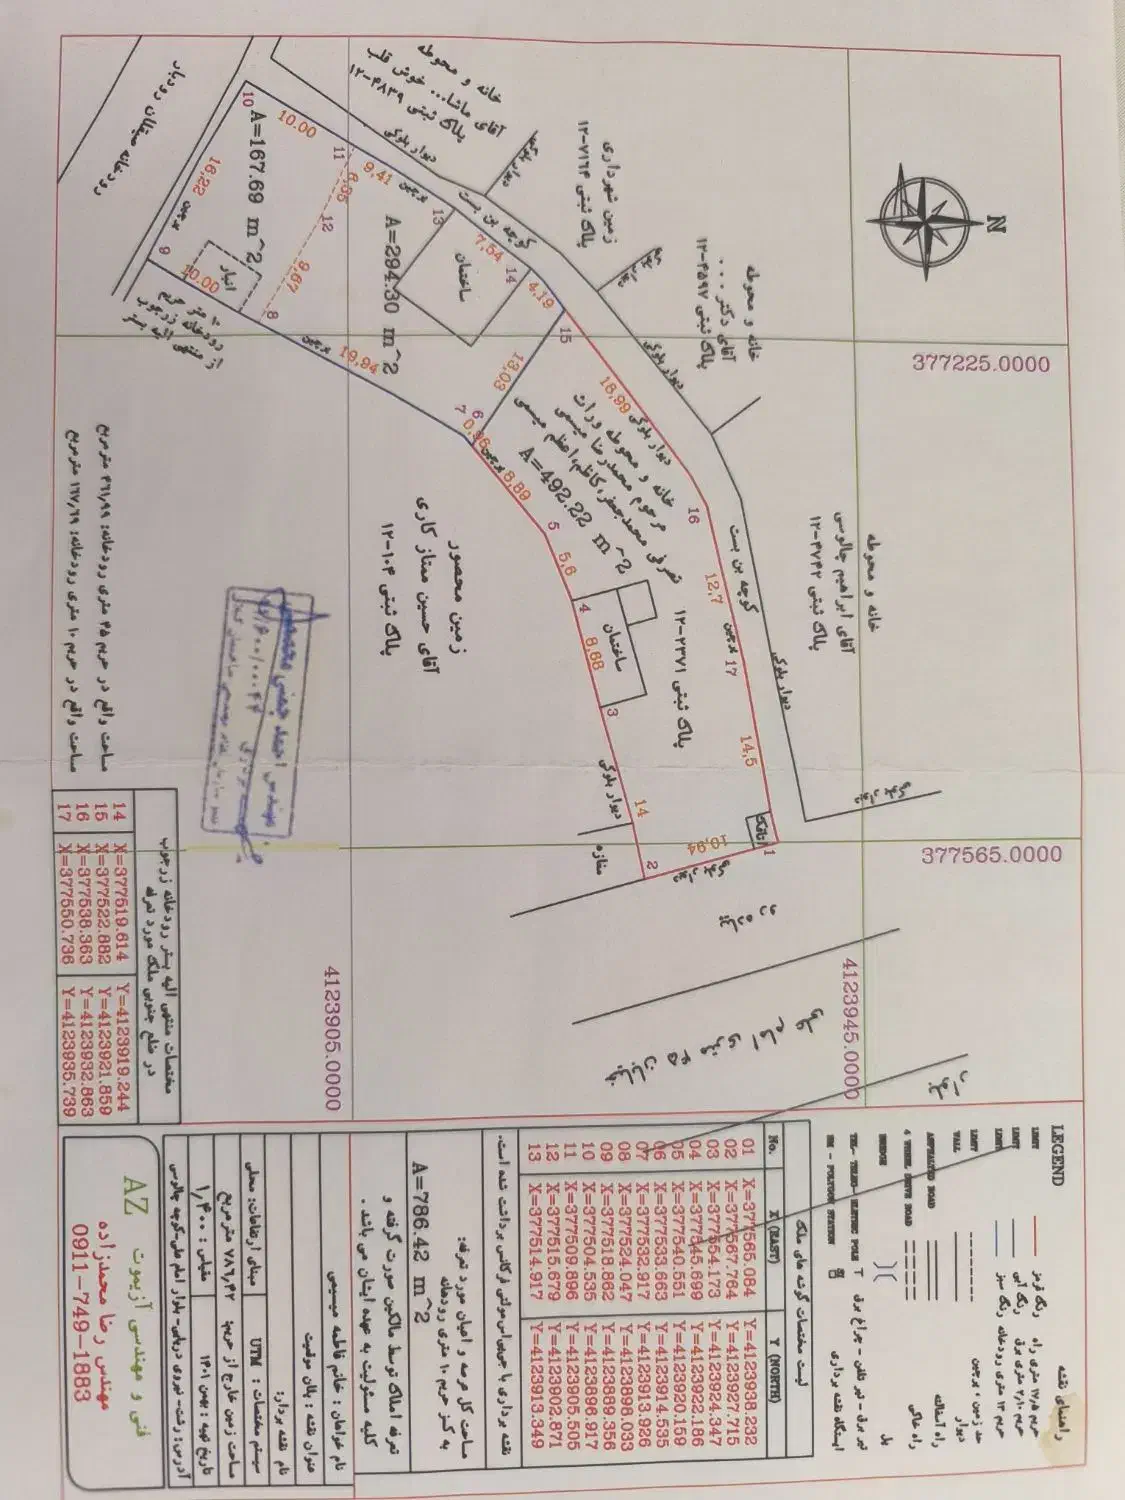 N
377225.0000
377565.0000
4123905.0000
4123945.0000
خانه و محوطه
آقای ماشاا... خوش قلب
پلاک ثبتی ۴۸۳۹-۱۲
زمین شهرداری
پلاک ثبتی ۷۱۶۴-۱۲
خانه و محوطه
آقای دکتر ...
پلاک ثبتی ۴۵۹۷-۱۲
خانه و محوطه
آقای ابراهیم چالوسی
پلاک ثبتی ۴۷۴۲-۱۲
دیوار بلوکی
دیوار بلوکی
دیوار بلوکی
دیوار بلوکی
دیوار بلوکی
کوچه بن بست
کوچه بن بست
رودخانه صیقلان رودبار
A=167.69 m^2
A=294.30 m^2
A=492.22 m^2
انبار
ساختمان
ساختمان
اتاقک
مغازه
پرچین
پرچین
پرچین
پرچین
پرچین
10
10.00
11
9,41
13
7,54
14
4.19
15
18,99
16
12,7
17
14,5
1
10,94
2
14
3
8,68
4
5,6
5
8,89
6
7
0,96
13,03
19,94
8
10.00
9
16,22
12
9,67
۱۰ متر حریم
رودخانه زرجوب
از منتهی الیه بستر
خانه و محوطه وراث
مرحوم محمدرضا میسمی
پلاک ثبتی ۲۳۷۱-۱۲
زمین محصور
آقای حسین ممتاز کاری
پلاک ثبتی ۱۰۴-۱۲
مساحت واقع در حریم ۳۵ متری رودخانه: ۴۶۱٫۹۹ مترمربع
مساحت واقع در حریم ۱۰ متری رودخانه: ۱۶۷٫۶۹ مترمربع
مختصات منتهی الیه بستر رودخانه زرجوب
در ضلع جنوبی ملک مورد تعرفه
14 X=377519.614 Y=4123919.244
15 X=377522.882 Y=4123921.859
16 X=377538.363 Y=4123932.863
17 X=377550.736 Y=4123935.739
LEGEND
راهنمای نقشه
LIMIT رنگ قرمز حریم ۱۷٫۵ متری راه
LIMIT رنگ آبی حریم ۲٫۱۰ متری برق
LIMIT رنگ سبز حریم ۱۳ متری رودخانه
LIMIT حد زمین ، پرچین
WALL دیوار
ASPHALTED ROAD راه آسفالته
4 WHEEL DRIVE ROAD راه خاکی
BRIDGE )( پل
تیر برق - تیر تلفن - چراغ برق
STATION ایستگاه نقشه برداری
لیست مختصات گوشه های ملک
No. X (EAST) Y (NORTH)
01 X=377565.084 Y=4123938.232
02 X=377567.764 Y=4123927.715
03 X=377554.173 Y=4123924.347
04 X=377545.699 Y=4123922.186
05 X=377540.551 Y=4123920.159
06 X=377533.663 Y=4123914.535
07 X=377532.917 Y=4123913.926
08 X=377524.047 Y=4123898.033
09 X=377518.862 Y=4123889.356
10 X=377504.535 Y=4123896.917
11 X=377509.896 Y=4123905.505
12 X=377515.679 Y=4123902.871
13 X=377514.917 Y=4123913.349
نقشه برداری با جی‌پی‌اس مولتی فرکانس برداشت شده است.
مساحت کل عرصه و اعیان مورد تعرفه:
به کسر حریم ۱۰ متری رودخانه
A=786.42 m^2
تعرفه املاک توسط مالکین صورت گرفته و
کلیه مسئولیت به عهده ایشان می باشد .
نام خواهان : خانم فاطمه میسمی
عنوان نقشه : پلان موقعیت
نام نقشه بردار:
سیستم مختصات : UTM
مبنای ارتفاعات: محلی
مساحت زمین خارج از حریم: ۷۸۶٫۴۲ مترمربع
تاریخ تهیه : بهمن ۱۴۰۱
مقیاس : ۱٫۴۰۰
آدرس: رشت-نیروی دریایی- بلوار امام علی-کوچه چالوسی
فنی و مهندسی آزیموت AZ
مهندس رضا محمدزاده
0911-749-1883